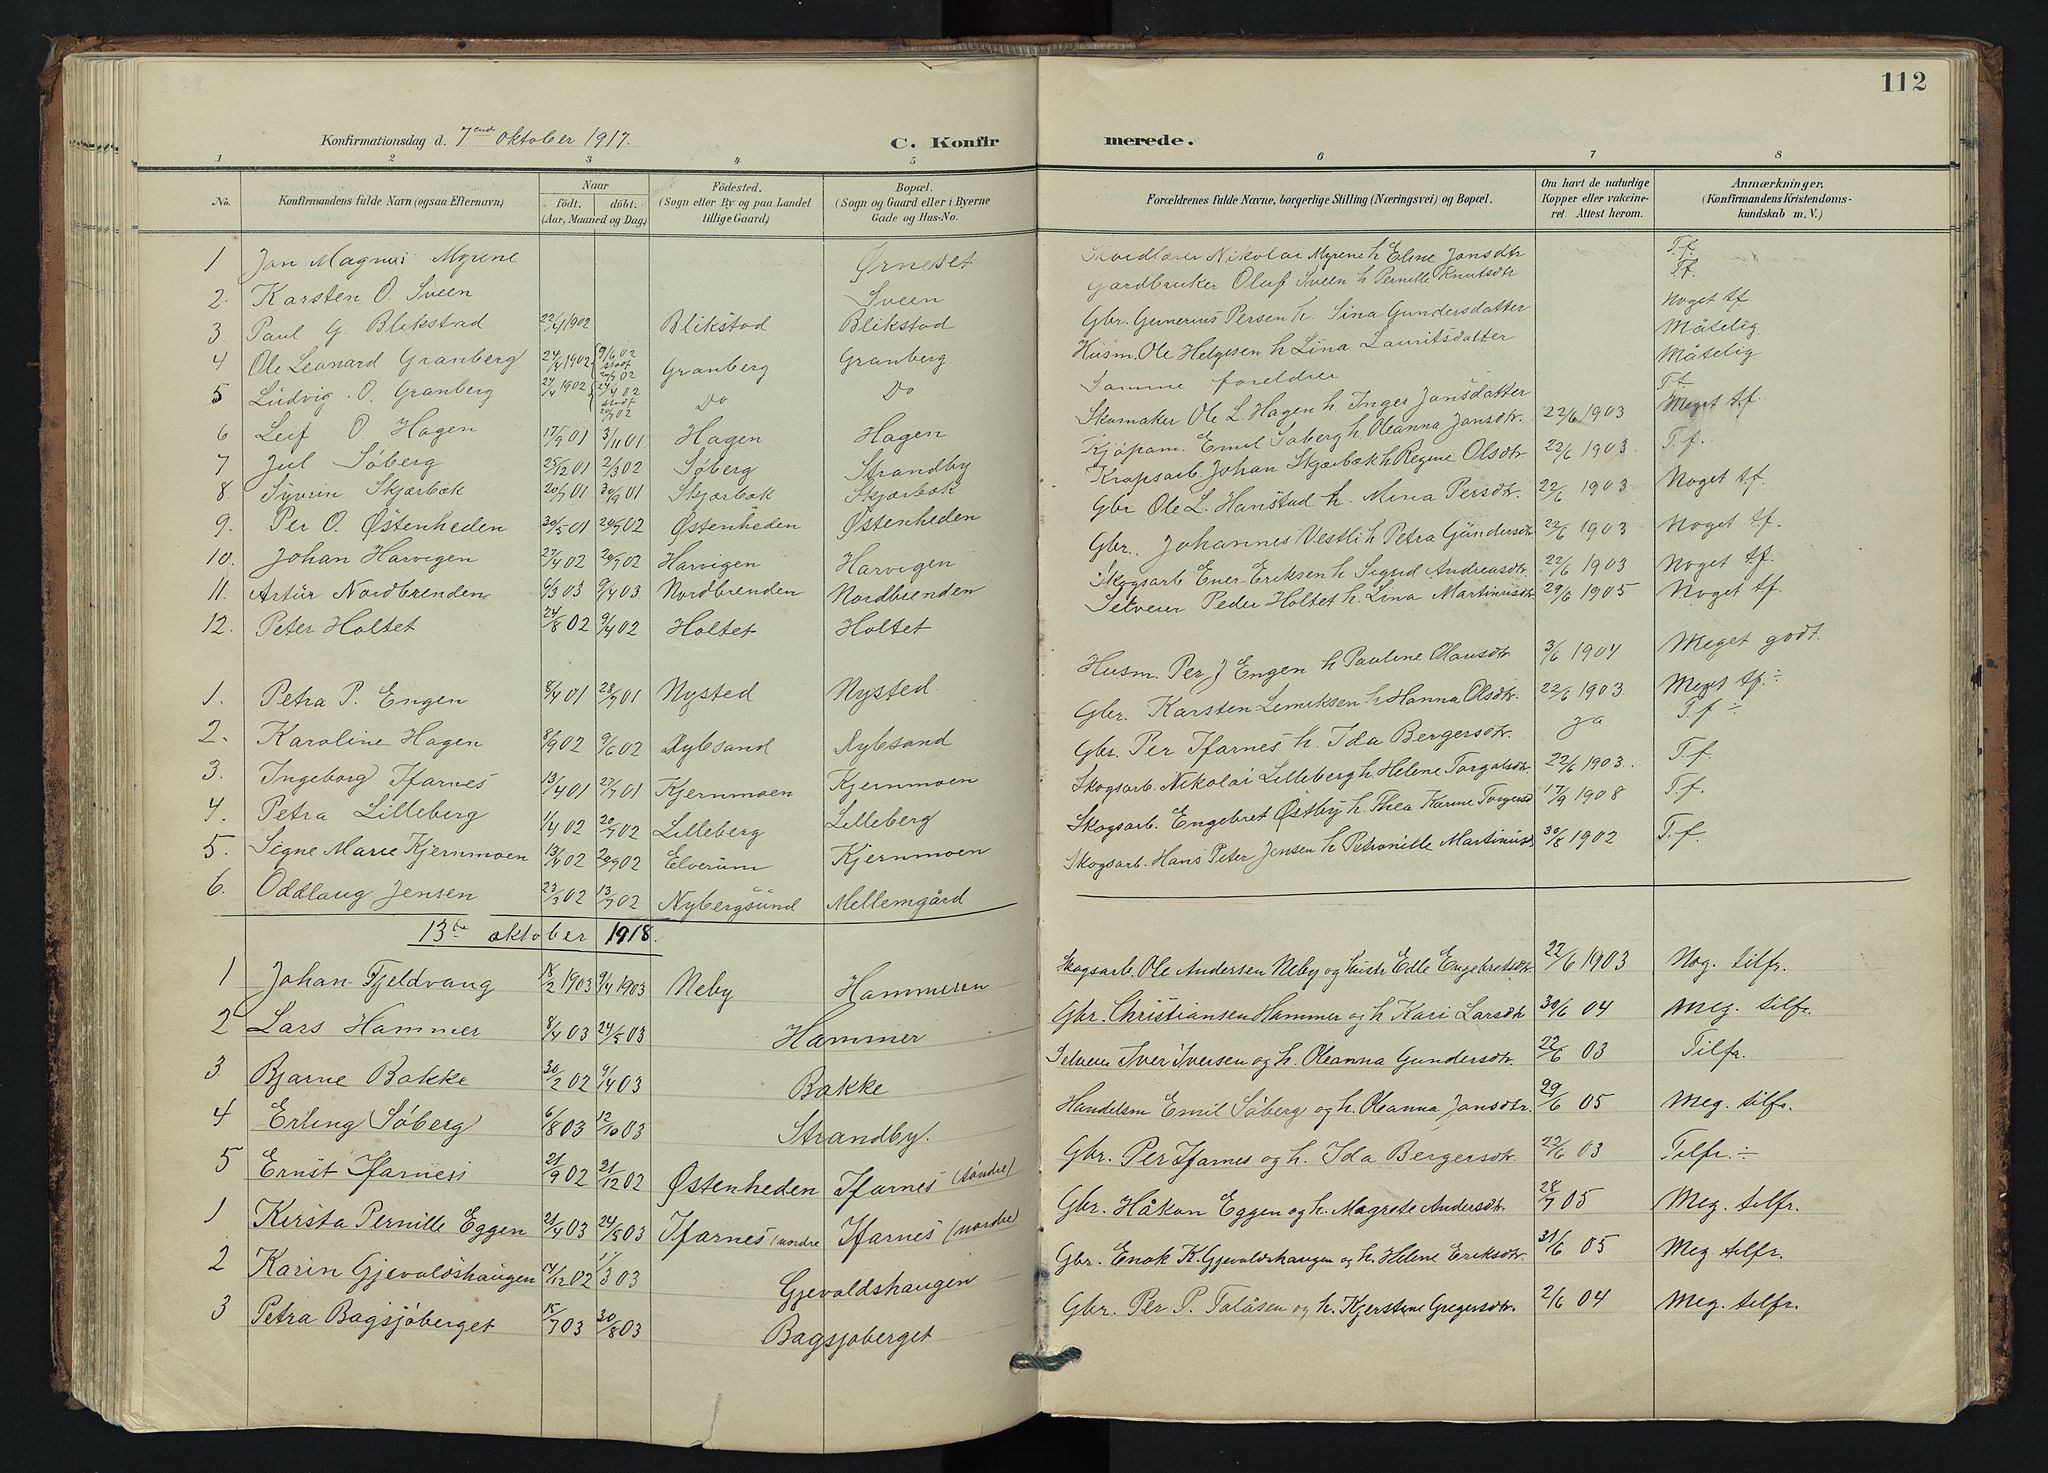 112
Konfirmationsdag d. 7ende Oktober 1917. C. Konfirmerede.
1 2 3 4 5 6 7 8
No. Konfirmandens fulde Navn (ogsaa Efternavn) Naar født. døbt. (Aar, Maaned og Dag) Födested. (Sogn eller By og paa Landet tillige Gaard) Bopæl. (Sogn og Gaard eller i Byerne Gade og Hus-No. Forældrenes fulde Navne, borgerlige Stilling (Næringsvei) og Bopæl. Om havt de naturlige Kopper eller vakcineret. Attest herom. Anmærkninger. (Konfirmandens Kristendomskundskab m. V.)
1 Jon Magnus Myrene Ørneset Nikolai Myrene h. Eline Jansdtr T.f.
2. Karsten O. Sveen Sveen Gardbruker Oluf Sveen h Pernille Knutsdtr Tf.
3 Paul G. Blikstad 22/4 1902 Blikstad Blikstad Gbr. Gunerius Persen h. Sina Gundersdatter Noget tf
4 Ole Leonard Granberg 24/4 1902 9/6 02 stadf 20/7 02 Granberg Granberg Husm. Ole Helgesen h Lina Lauritsdatter Måtelig
5 Ludvig O. Granberg 24/4 1902 24/4 02 stadf 20/7 02 Do Do Samme foreldrer Måtelig
6 Leif O. Hagen 17/9 01 3/11 01 Hagen Hagen Skomaker Ole L. Hagen h. Inger Jansdatter 22/6 1903 T.f.
7 Jul Søberg 25/12 01 2/3 02 Søberg Strandby Kjøpm. Emil Søberg h. Oleanna Jansdtr. 22/6 1903 Meget tf.
8. Syverin Skjærbæk 20/7 01 Skjærbæk Skjærbæk Johan Skjærbæk h Regine Olsdtr. 22/6 1903 T.f.
9. Per O. Østenheden 30/5 01 20/7 02 Østenheden Østenheden Gbr Ole L. Hanstad h. Mina Persdtr. 22/6 1903 Noget tf.
10. Johan Harvigen 27/4 02 20/7 02 Harvigen Harvigen Gbr. Johannes Vestli h Petra Gundersdtr 22/6 1903 Noget tf.
11. Artur Nordbrenden 6/3 03 9/4 03 Nordbrenden Nordbrenden Skogsarb. Ener Eriksen h Sigrid Andreasdtr 22/6 1903 Noget tf.
12. Peter Holtet 24/8 02 9/4 02 Holtet Holtet Selveier Peder Holtet h. Lina Martinusdtr 29/6 1905 Noget tf.
1. Petra P. Engen 8/4 01 28/7 01 Nysted Nysted Husm. Per J Engen h Pauline Olausdtr 3/6 1904 Meget godt.
2. Karoline Hagen 8/9 02 9/6 02 Rybsand Rybsand Gbr. Karsten Lemiksen h Hanna Olsdtr. 22/6 1903 Meget tf. ÷
3. Ingeborg Ifarnes 13/4 01 27/7 01 Kjernmoen Kjernmoen Gbr. Per Ifarnes h. Ida Bergersdtr. ja T.f ÷
4. Petra Lilleberg 1/4 02 20/7 02 Lilleberg Lilleberg Skogsarb. Nikolai Lilleberg h. Helene Torgalsdtr. 22/6 1903. T.f.
5. Signe Marie Kjernmoen 13/4 02 20/9 02 Elverum Kjernmoen Skogsarb. Engebret Østby h. Thea Karine Torgersd 17/9 1908 T.f.
6. Oddlaug Jensen 23/3 02 13/7 02 Nybergsund Mellemgård Skogsarb. Hans Peter Jensen h Petronille Martinusd 30/8 1902 T.f.
13de oktober 1918.
1 Johan Fjeldvang 18/2 1903 9/4 1903 Neby Hammeren Skogsarb. Ole Andersen Neby og hustr Edle Engebretsdtr. 22/6 1903 Nog. tilfr.
2 Lars Hammer 8/4 03 24/5 03 Hammer Gbr. Christiansen Hammer og h Kari Larsdtr 30/6 04 Meg. tilfr.
3 Bjarne Bakke 30/2 02 9/4 03 Bakke Selveier Iver Iversen og h. Oleanna Gundersdtr. 22/6 03 Tilfr.
4 Erling Søberg 6/8 03 12/10 03 Strandby. Handelsm Emil Søberg og h. Oleanna Jansdtr. 29/6 05 Meg. tilfr.
5 Ernst Ifarnes 21/9 02 21/12 02 Østenheden Ifarnes (søndre) Gbr. Per Ifarnes og h. Ida Bergersdtr. 22/6 03 Tilfr. ÷
1 Kirsta Pernille Eggen 21/4 03 24/5 03 Ifarnes (nordre Ifarnes (nordre) Gbr. Håkon Eggen og h. Magrete Andersdtr. 28/7 05 Meg. tilfr.
2 Karin Gjevaldshaugen 17/12 02 1/3 03 Gjevaldshaugen Gbr. Enok K. Gjevaldshaugen og h. Helene Eriksdtr. 21/6 05 Meg tilfr.
3 Petra Bagsjøberget 15/7 03 30/8 03 Bagsjøberget Gbr. Per P. Talåsen og h. Kjerstine Gregersdtr. 2/6 04 Meg. tilfr.